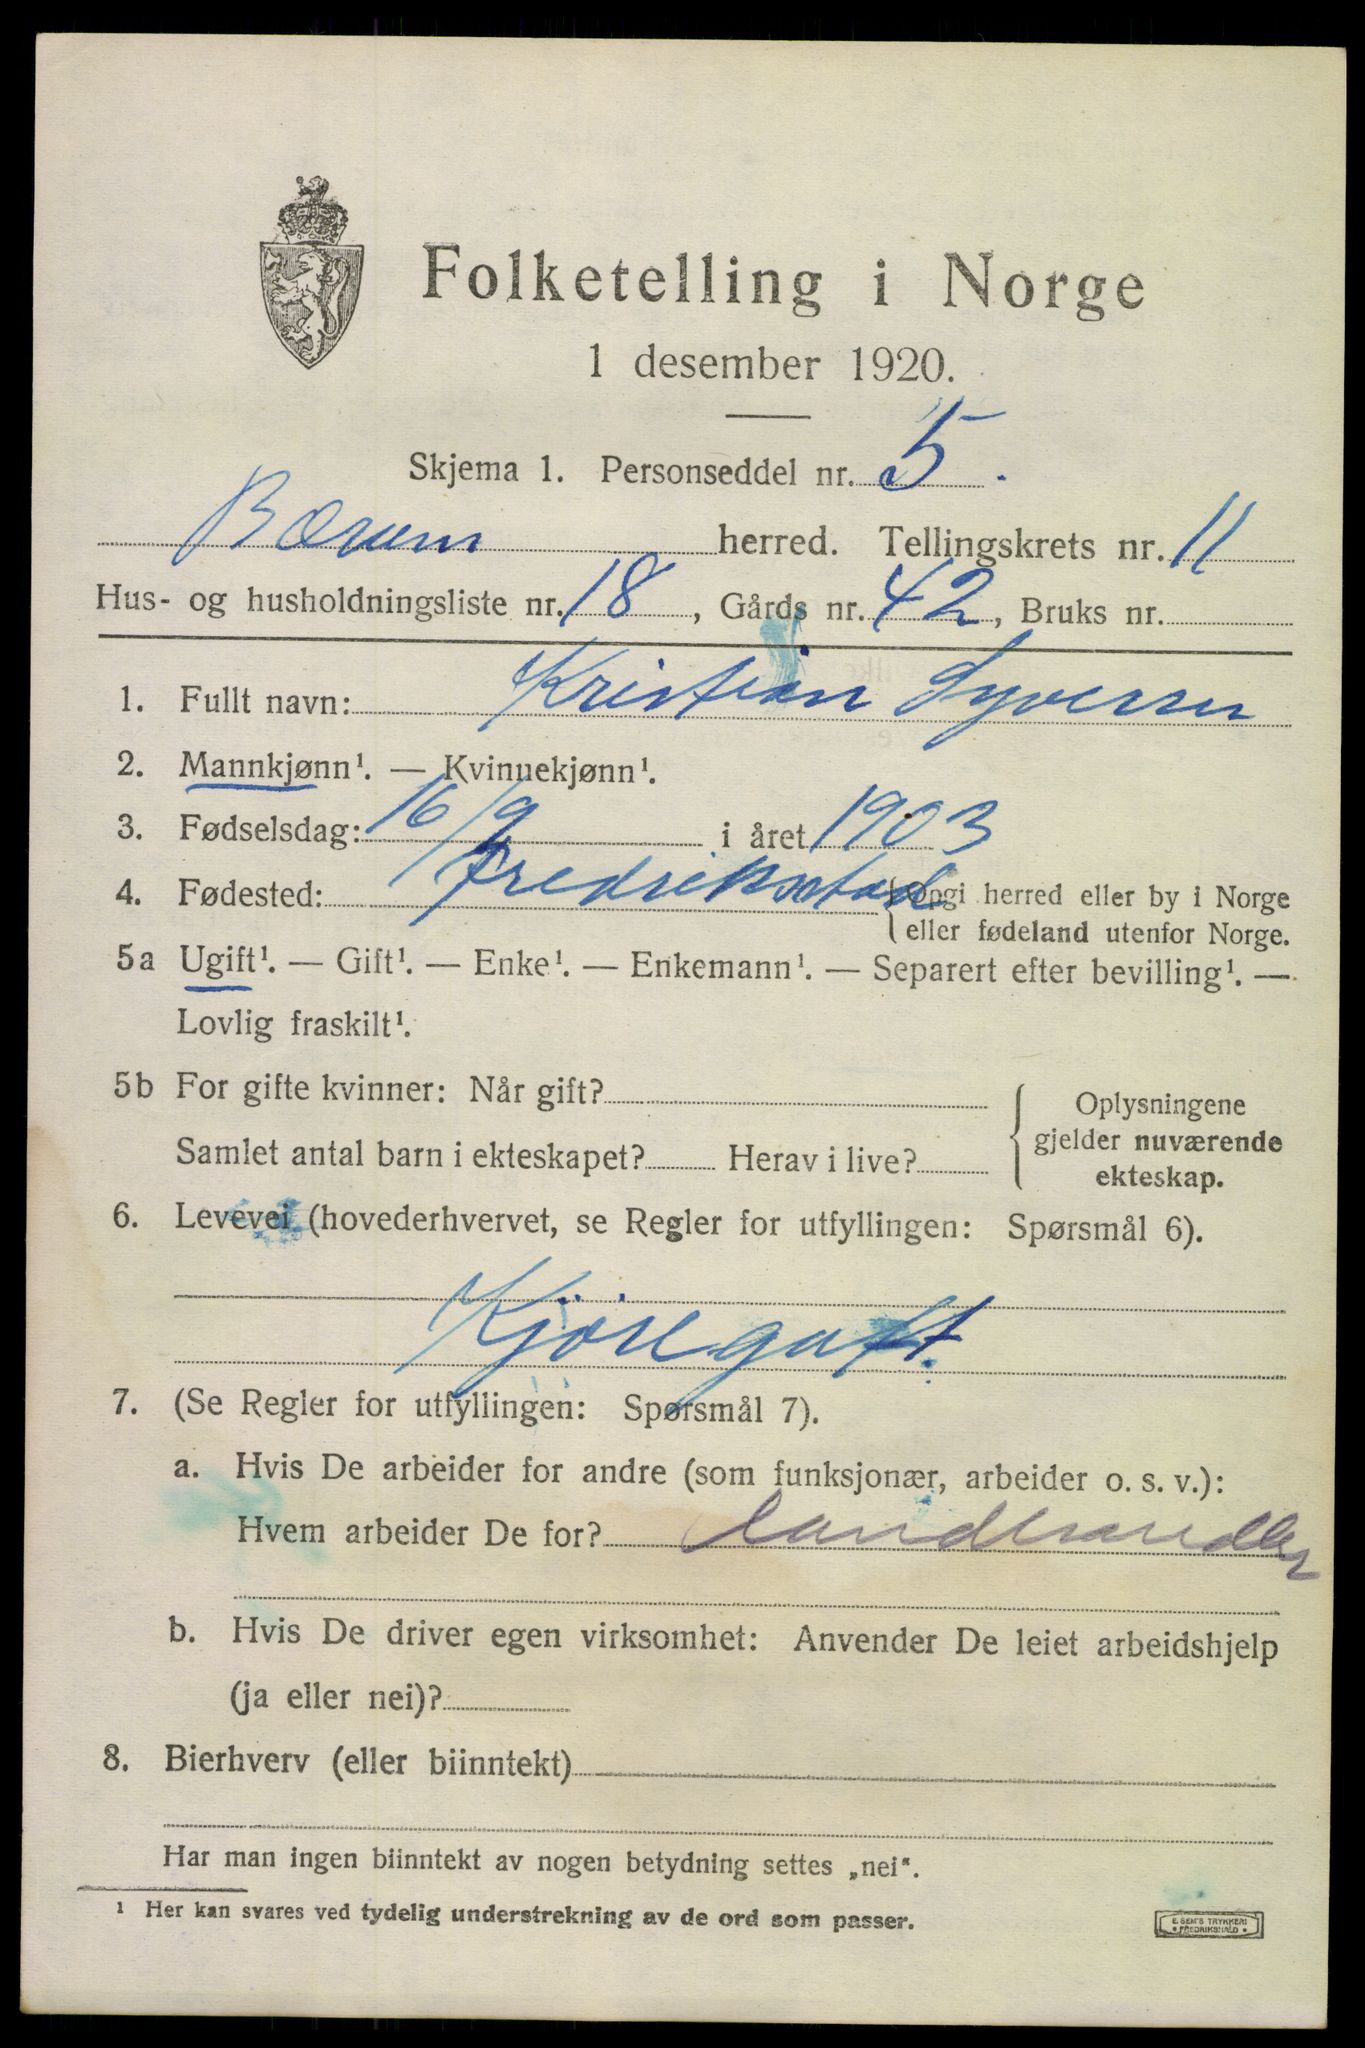 Folketelling i Norge
1 desember 1920.
Skjema 1. Personseddel nr. 5.
Bærum herred. Tellingskrets nr. 11
Hus- og husholdningsliste nr. 18, Gårds nr. 42, Bruks nr.
1. Fullt navn: Kristian Syversen
2. Mannkjønn¹. — Kvinnekjønn¹.
3. Fødselsdag: 16/9 i året 1903
4. Fødested: Fredrikstad {Opgi herred eller by i Norge
eller fødeland utenfor Norge.
5a Ugift¹. — Gift¹. — Enke¹. — Enkemann¹. — Separert efter bevilling¹. —
Lovlig fraskilt¹.
5b For gifte kvinner: Når gift?
Samlet antal barn i ekteskapet? Herav i live?
Oplysningene
gjelder nuværende
ekteskap.
6. Levevei (hovederhvervet, se Regler for utfyllingen: Spørsmål 6).
Kjöregutt.
7. (Se Regler for utfyllingen: Spørsmål 7).
a. Hvis De arbeider for andre (som funksjonær, arbeider o. s. v.):
Hvem arbeider De for? Landhandler
b. Hvis De driver egen virksomhet: Anvender De leiet arbeidshjelp
(ja eller nei)?
8. Bierhverv (eller biinntekt)
Har man ingen biinntekt av nogen betydning settes „nei“.
¹ Her kan svares ved tydelig understrekning av de ord som passer.
E. SEM'S TRYKKERI
• FREDRIKSHALD •